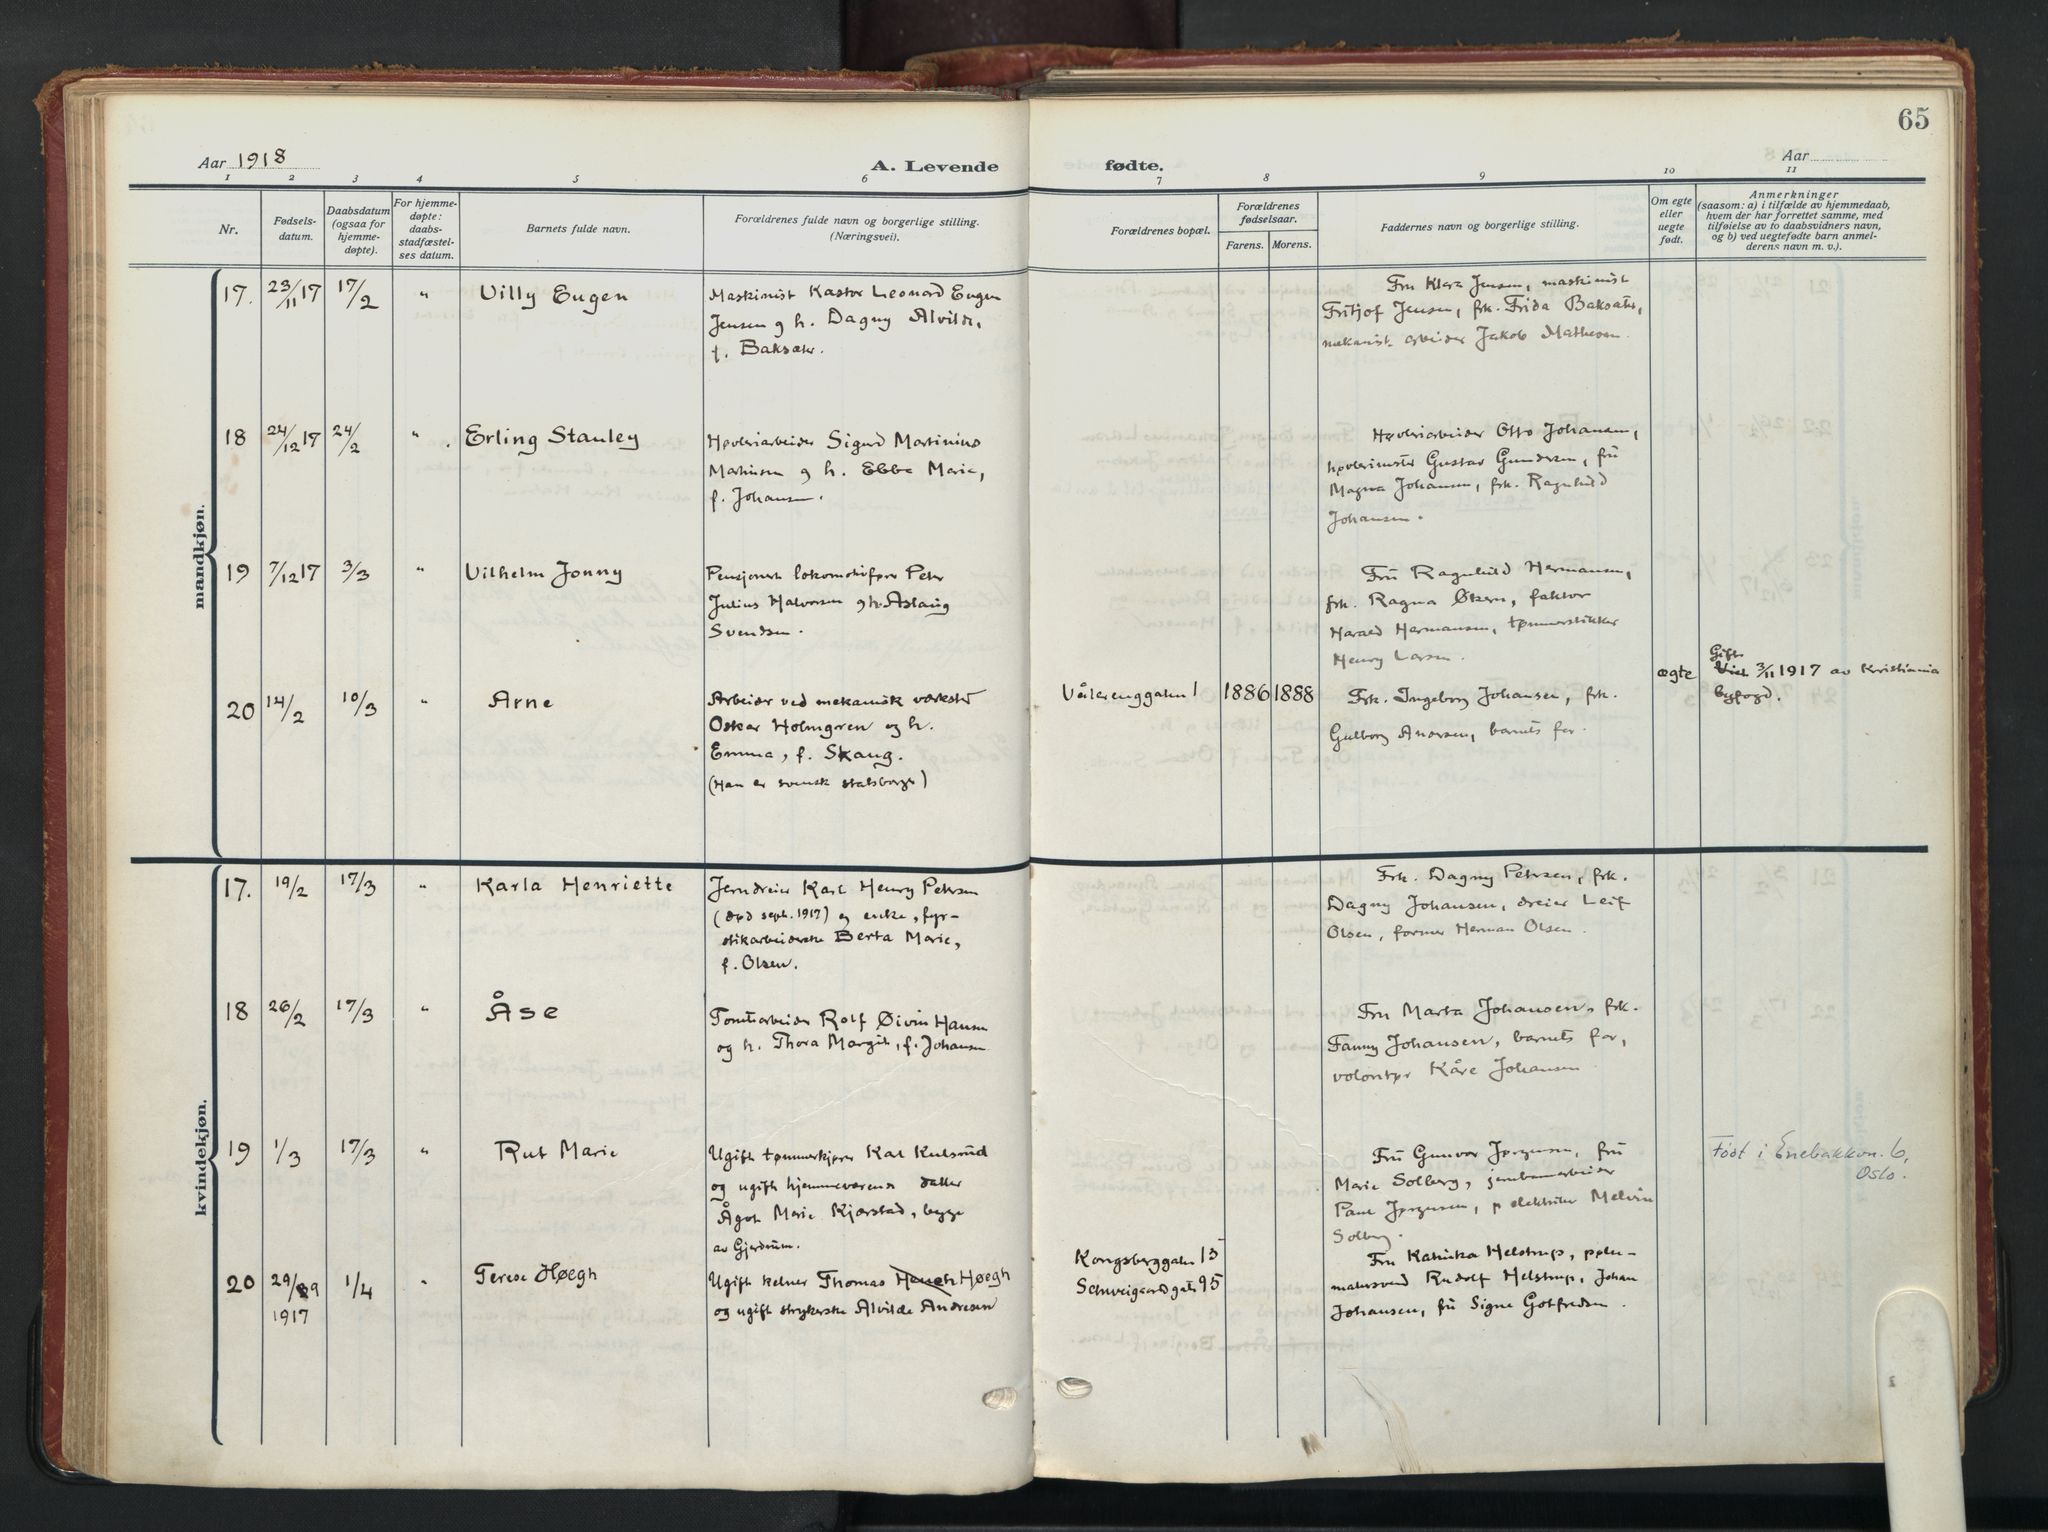 65
Aar 1918
A. Levende
fødte.
Aar
1 2 3 4 5 6 7 8 9 10 11
Nr.
Fødsels-
datum.
Daabsdatum
(ogsaa for
hjemme-
døpte).
For hjemme-
døpte:
daabs-
stadfæstel-
ses datum.
Barnets fulde navn.
Forældrenes fulde navn og borgerlige stilling.
(Næringsvei).
Forældrenes bopæl.
Forældrenes
fødselsaar.
Farens. Morens.
Faddernes navn og borgerlige stilling.
Om egte
eller
uegte
født.
Anmerkninger
(saasom: a) i tilfælde av hjemmedaab,
hvem der har forrettet samme, med
tilføielse av to daabsvidners navn,
og b) ved uegtefødte barn anmel-
derens navn m. v.).
mandkjøn.
17. 23/11 17 17/2 " Villy Eugen
Maskinist Kastor Leonard Eugen
Jensen og h. Dagny Alvilde,
f. Baksæter.
Fru Klara Jensen, maskinist
Fritjof Jensen, frk. Frida Baksæter,
mekanisk arbeider Jakob Mathesen.
18 24/12 17 24/2 " Erling Stanley
Høvleriarbeider Sigurd Martinius
Martinsen og h. Ebba Marie,
f. Johansen.
Høvleriarbeider Otto Johansen,
høvlerimester Gustav Gundersen, fru
Magna Johansen, frk. Ragnhild
Johansen.
19 7/12 17 3/3 " Vilhelm Jonny
Pensjonert lokomotivfører Peter
Julius Halvorsen og h. Aslaug
Svendsen.
Fru Ragnhild Hermansen,
frk. Ragna Økern, faktor
Harald Hermansen, tømmerstikker
Henry Larsen.
20 14/2 10/3 " Arne
Arbeider ved mekanisk verksted
Oskar Holmgren og h.
Emma, f. Skaug.
(Han er svensk statsborger)
Vålerenggaten 1 1886 1888
Frk. Ingeborg Johansen, frk.
Gulborg Andersen, barnets far.
ægte
Gift
Viet 3/11 1917 av Kristiania
byfogd.
kvindekjøn.
17. 19/2 17/3 " Karla Henriette
Jerndreier Karl Henry Petersen
(død sept. 1917) og enke, fyr-
stikarbeiderske Berta Marie,
f. Olsen.
Frk. Dagny Petersen, frk.
Dagny Johansen, dreier Leif
Olsen, former Herman Olsen.
18 26/2 17/3 " Åse
Tomtearbeider Rolf Øivin Hansen
og h. Thora Margit, f. Johansen
Fru Marta Johansen, frk.
Fanny Johansen, barnets far,
volontør Kåre Johansen
19 1/3 17/3 " Rut Marie
Ugift tømmerkjører Karl Kulsrud
og ugift hjemmeværende datter
Ågot Marie Kjærstad, begge
av Gjerdrum.
Fru Gunvor Jørgensen, fru
Marie Solberg, jernbanearbeider
Paul Jørgensen, elektriker Melvin
Solberg.
Født i Enebakkvn. 6,
Oslo.
20 29/9 1/4 " Terese Høegh
1917
Ugift kelner Thomas Høegh
og ugift strykerske Alvilde Andresen
Kongsberggaten 15
Schweigaardgate 95
Fru Katinka Helstrup,
malersvend Rudolf Helstrup, Johan
Johansen, fru Signe Gotfredsen.